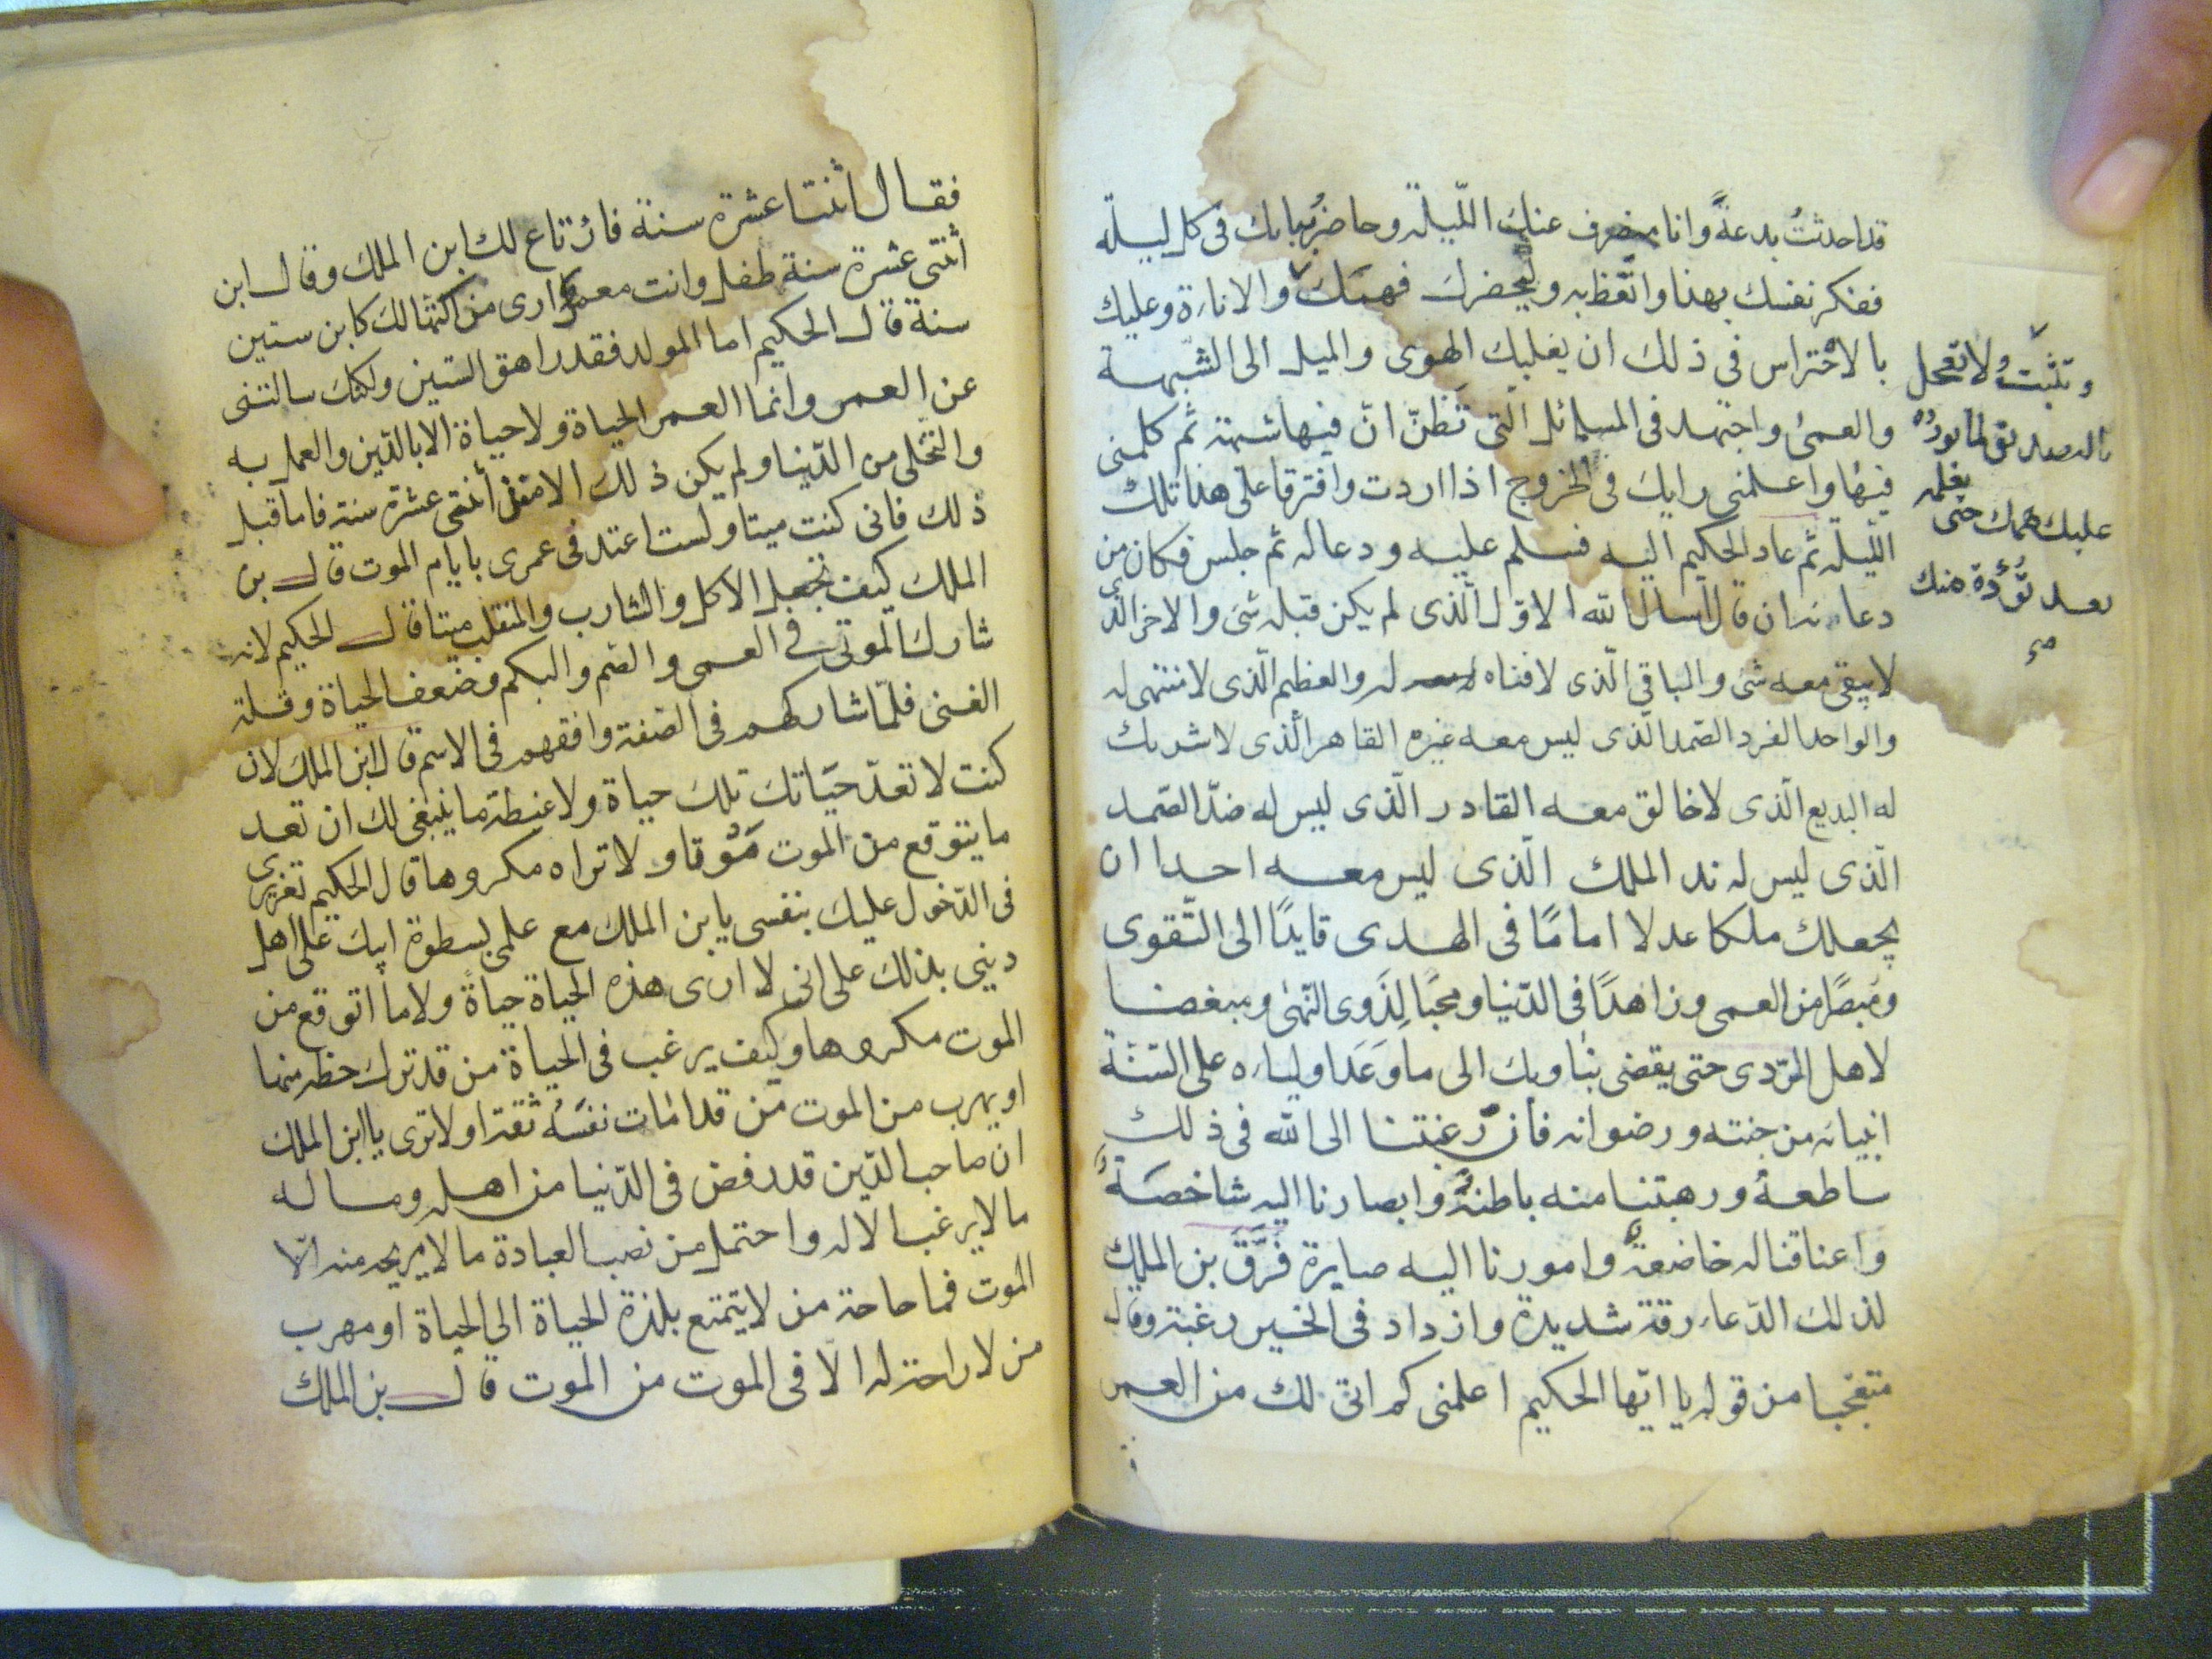 قد احدثتُ بدعةً وانا منصرف عنك اللّيلة وحاضرُ بابك فى كل ليلة
ففكر نفسك بهذا واتّعظ به وليحضرك فهمك والاناءة وعليك
بالاحتراس في ذلك ان يغلبك الهوى والميل الى الشّبهة
والعمىٰ واجتهد فى المسائل الّتى تَظنّ انّ فيها شبهة ثم كلمنى
فيها واعلمنى رايك فى الخروج اذا اردت وافترقا على هذا تلك
اللّيلة ثم عاد الحكيم اليه فسلم عليه ودعا له ثم جلس فكان من
دعائه ان قال اسال الله الاوّل الّذى لم يكن قبله شئ والاخر الّذى
لا يبقى معه شئ والباقي الّذى لا فناء له والعظيم الّذى لا منتهى له
والواحد الفرد الصّمد الّذى ليس معه غيره القاهر الّذى لا شريك
له البديع الّذى لا خالق معه القادر الّذى ليس له ضدّ الصّمد
الّذى ليس له ند الملك الّذى ليس معه احدا ان
يجعلك ملكا عدلا امامًا فى الهدى قايدًا الى التّقوى
ومُبصّرًا من العمى وزاهدًا فى الدّنيا ومحبًا لِذَوى النّهىٰ ومبغضا
لاهل الرّدى حتى يقضى بنا وبك الى ما وَعَد اولياءه على السنة
انبيائه من جنته ورضوانه فانّ رغبتنا الى الله فى ذلك
ساطعةُ ورهبتنا منه باطنةٌ وابصارنا اليه شاخصَة
واعناقنا له خاضعةٌ وامورنا اليه صايرة فَرَقَّ بن الملك
لذلك الدّعاء رقة شديدة وازداد فى الخير رغبة وقال
متعجبا من قوله يا ايّها الحكيم اعلمنى كم اتى لك من العمر
وتثبتْ ولا تعجل
بالتصديق لما يوردُه
عليك همك حتى يعلمه
بعد تؤدة منك
صح
فقال اثنتا عشرة سنة فارتاع لك ابن الملك وقال ابن
اثنتى عشرة سنة طفل وانت معمّا ارى من اكتهالك كابن ستين
سنة قال الحكيم اما المولد فقد راهق الستين ولكنك سالتنى
عن العمر وانما العمر الحياة ولا حياة الا بالدّين والعمل به
والتخّلى من الدّنيا ولم يكن ذلك الا منذ أثنتى عشرة سنة فاما قبل
ذلك فانى كنت ميتا ولست اعتد فى عمرى بايام الموت قال بن
الملك كيف تجعل الاكل والشارب والمتقلب ميتا قال الحكيم لانه
شارك الموتى في العمى والصّم والبكم وضعف الحياة وقلة
الغنى فلمّا شاركهم فى الصّفة وافقهم فى الاسم قال ابن الملك لان
كنت لا تعدّ حَيَاتكَ تلك حياة ولا غبطة ما ينبغى لك ان تعد
ما يتوقع من الموت مَوْتا ولا تراه مكروها قال الحكيم تغزيرى
فى الدّخول عليك بنفسى يا بن الملك مع علمى بسطوة ابيك على اهل
ديني يدلك على انى لا ارى هذه الحياة حياةً ولا ما اتوقع من
الموت مكروها وكيف يرغب فى الحياة من قد ترك حظه منها
او يهرب من الموت مَن قد امات نفسَهُ ثقة اولا ترى يا ابن الملك
ان صاحب الدّين قد رفض فى الدّنيا من اهله وماله
ما لا يرغب الا له واحتمل من نصب العبادة ما لا يريحه منه الّا
الموت فما حاجة من لا يتمتع بلذة الحياة الى الحياة او مهرب
من لا راحة له الّا فى الموت من الموت قال بن الملك